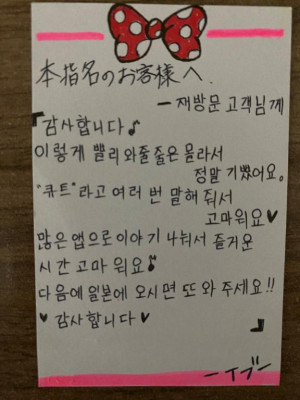 本指名のお客様へ.
ー재방문 고객님께
『감사합니다♪
이렇게 빨리와줄줄은 몰라서
정말 기뻤어요。
"큐트"라고 여러 번 말해 줘서
고마워요♥
많은 앱으로이야기 나눠서 즐거운
시간 고마워요♪
다음에 일본에 오시면 또 와 주세요!!
♥ 감사합니다 ♥
』
ーイブー